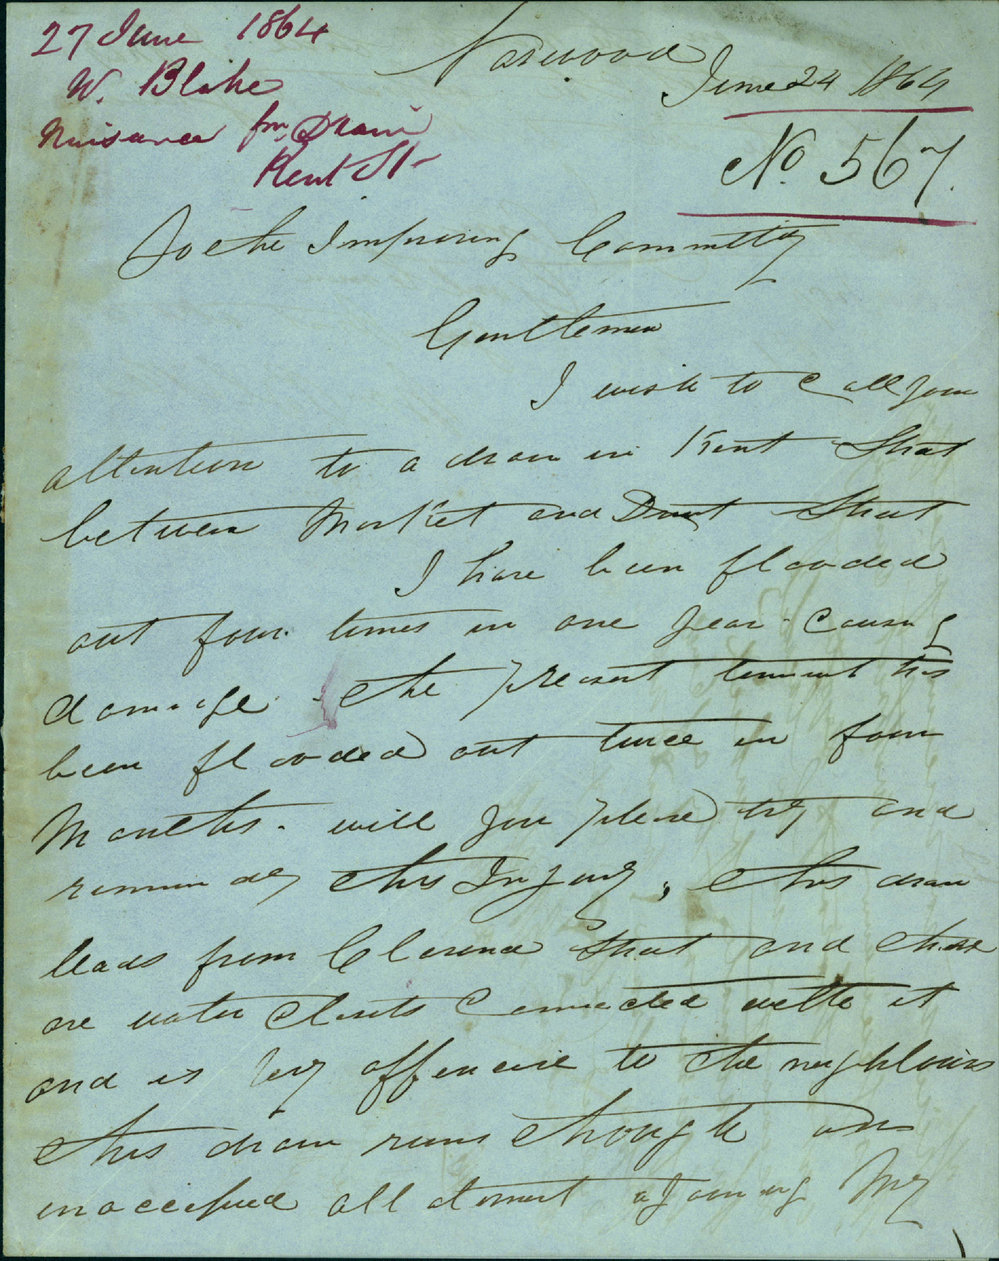 27 June 1864
W. Blake
Nuisance fm Drain
Kent St
Norwood
June 24 1864
No. 567.
To the Improving Committy
Gentlemen
I wish to call your
attention to a drain in Kent Street
between Market and Street
I have been flooded
out four times in one year causing
damage. the present tennent has
been flooded out twice in four
Months. will you please try and
this Injury, this drain
leads from Clarence Street and there
are water closets connected with it
and is very offencive to the neighbours
this drain runs through an
unoccepied allotment ajoining My